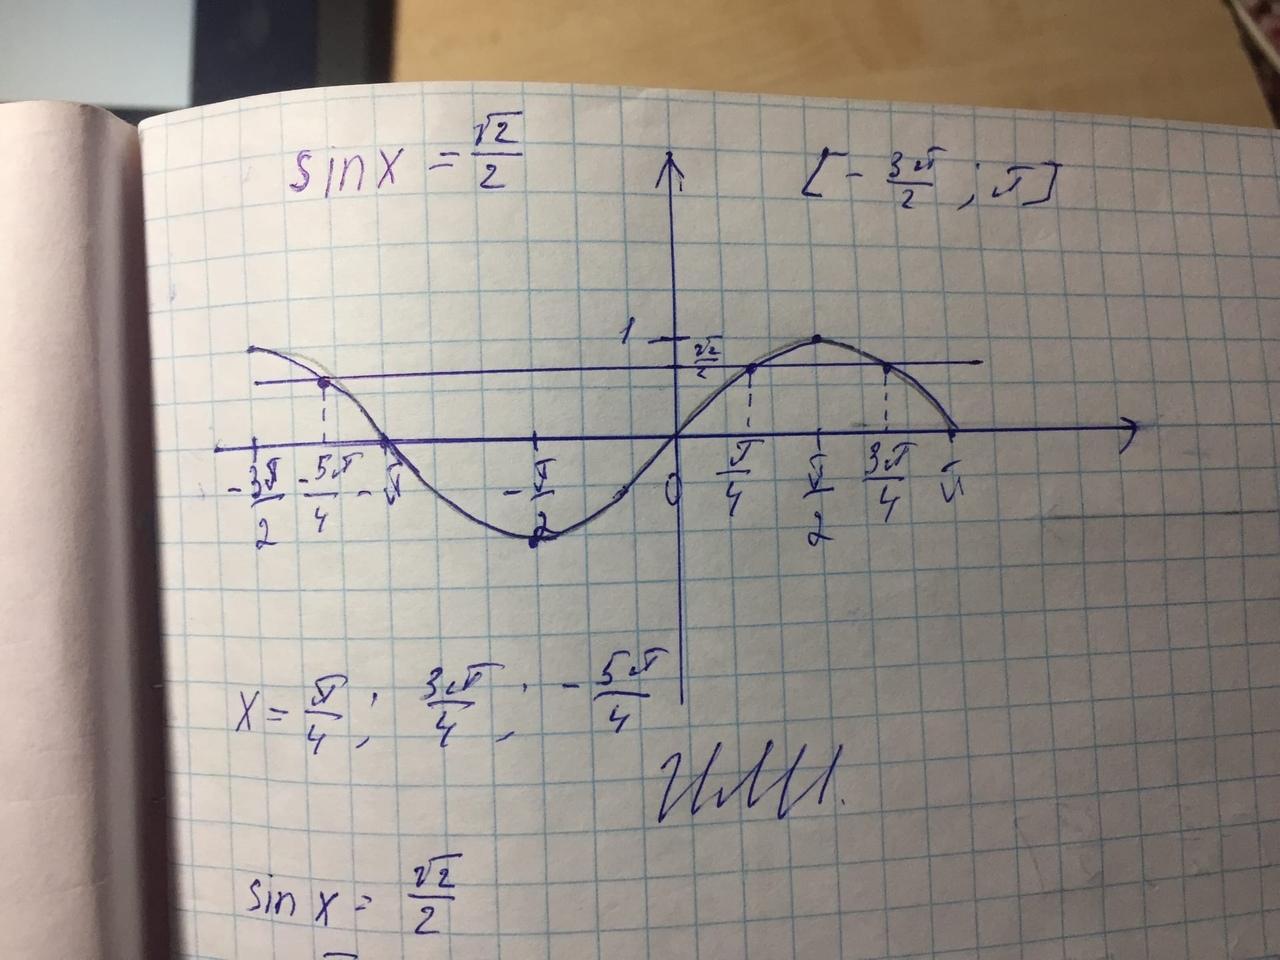 sin x = √2/2 [-3π/2 ; π]
1 √2/2
-3π/2 -5π/4 -π -π/2 0 π/4 π/2 3π/4 π
x = π/4 ; 3π/4 ; -5π/4
или.
sin x = √2/2